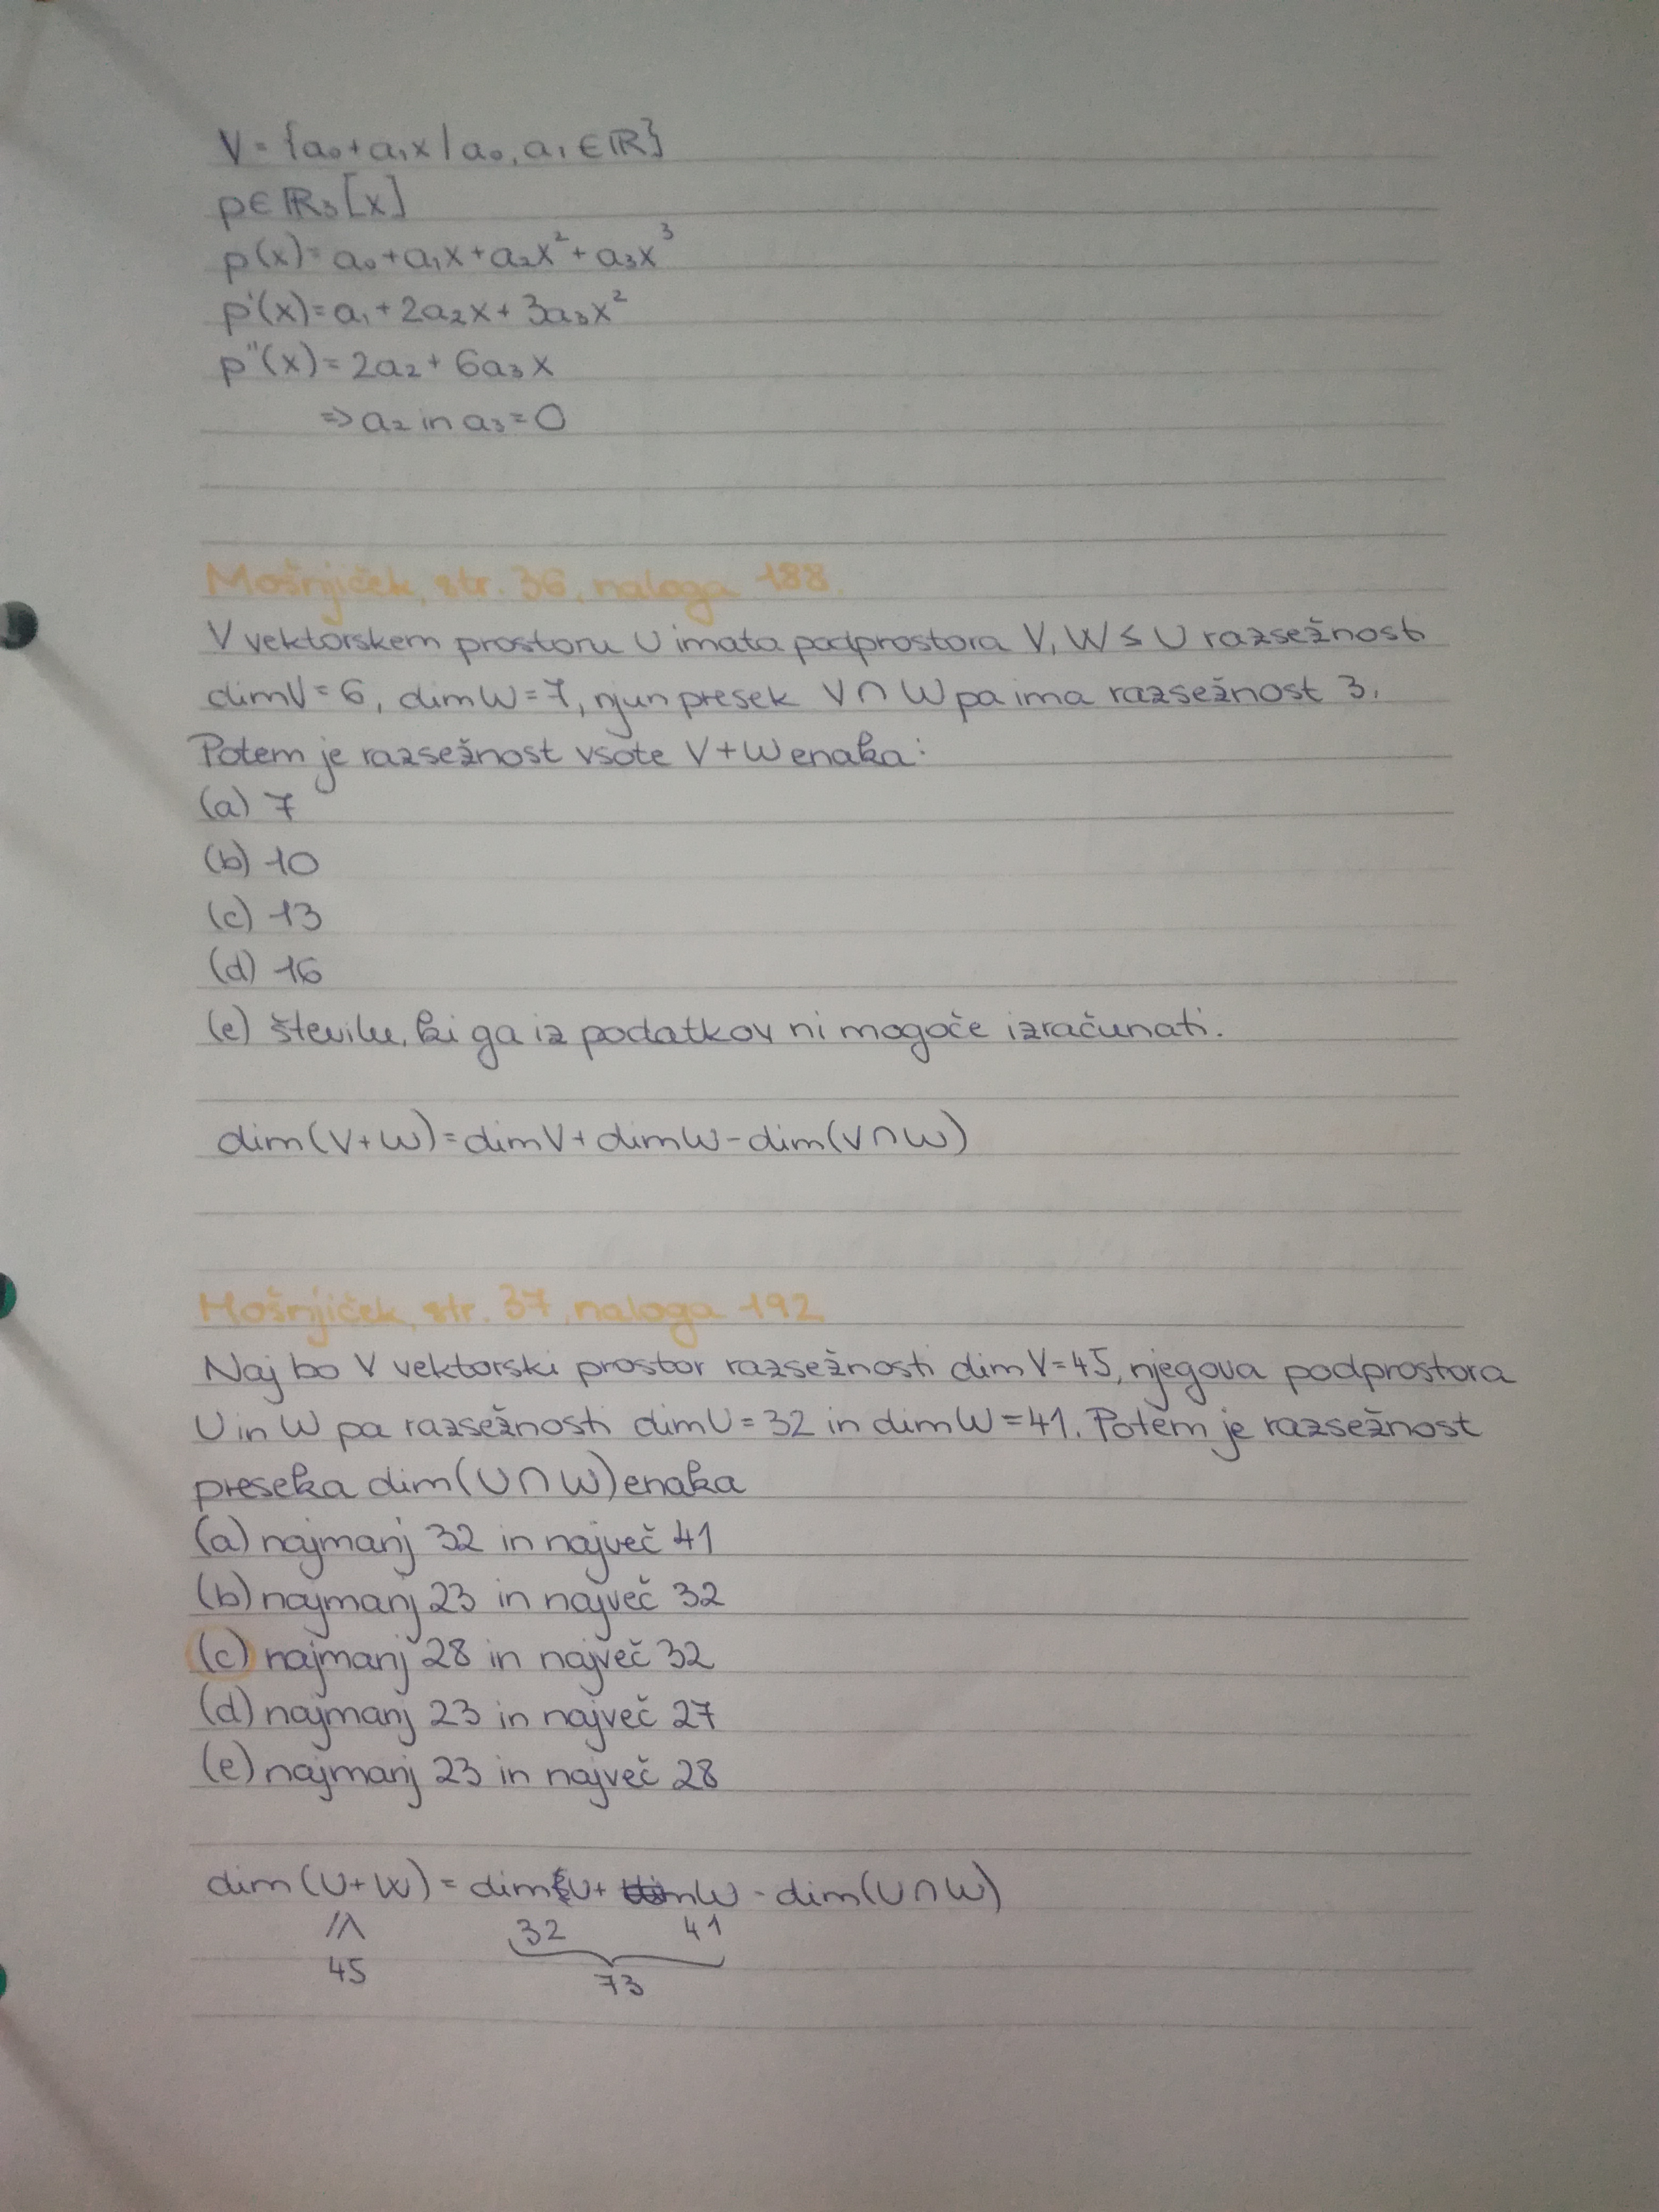 V = {a₀+a₁x | a₀, a₁ ∈ ℝ}
p∈ℝ₃[x]
p(x)= a₀+a₁x+a₂x²+a₃x³
p'(x)= a₁+2a₂x+3a₃x²
p''(x)= 2a₂+6a₃x
=> a₂ in a₃=0
Mošnjiček, str. 36, naloga 188.
V vektorskem prostoru U imata podprostora V, W ≤ U razsežnost
dimV=6, dimW=7, njun presek V∩W pa ima razsežnost 3.
Potem je razsežnost vsote V+W enaka:
(a) 7
(b) 10
(c) 13
(d) 16
(e) številu, ki ga iz podatkov ni mogoče izračunati.
dim(V+W)=dimV+dimW-dim(V∩W)
Mošnjiček, str. 37, naloga 192
Naj bo V vektorski prostor razsežnosti dimV=45, njegova podprostora
U in W pa razsežnosti dimU=32 in dimW=41. Potem je razsežnost
preseka dim(U∩W) enaka
(a) najmanj 32 in največ 41
(b) najmanj 23 in največ 32
(c) najmanj 28 in največ 32
(d) najmanj 23 in največ 27
(e) najmanj 23 in največ 28
dim(U+W)=dimU+dimW-dim(U∩W)
≤ 32 41
45 73